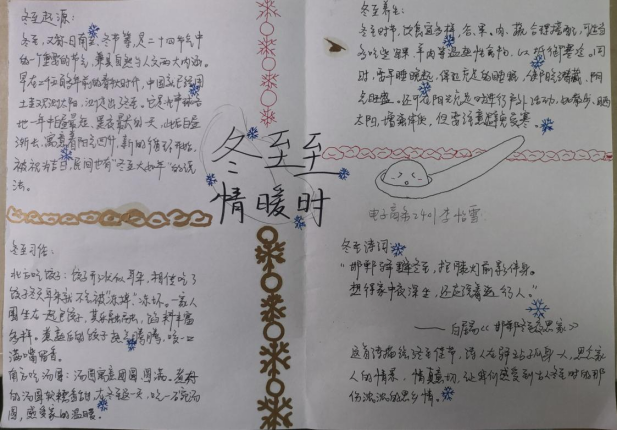 冬至起源:
冬至,又称日南至、冬节等,是二十四节气中
的一个重要的节气,兼具自然与人文两大内涵。
早在二千五百多年前的春秋时代,中国就已经用
土圭观测太阳,测定出冬至。它是北半球各
地一年中白昼最短、黑夜最长的一天,此后白昼
渐长,寓意着阳气回升,新的循环开始,
被视为吉日,民间也有“冬至大如年”的说
法。
冬至养生:
冬至时节,饮食宜多样,谷、果、肉、蔬合理搭配,可适当
多吃些坚果、羊肉等温热性食物,以抵御寒冷。同
时,需早睡晚起,保证充足的睡眠,使阴
气旺盛。还可在阳光充足时进行户外活动,如散步、晒
太阳,增强体质,但需注意避免受寒。
冬至至
情暖时
电子商务2401 李怡雪
冬至习俗:
北方吃饺子:饺子形状似耳朵,相传吃了
饺子冬天耳朵就不会被冻坏。一家人
围坐在一起包饺子,其乐融融,馅料丰富
多样。煮熟后的饺子热气腾腾,咬一口
满嘴留香。
南方吃汤圆:汤圆寓意团圆、圆满。煮好
的汤圆软糯香甜,在冬至这一天,吃一碗汤
圆,感受家的温暖。
冬至诗词:
“邯郸驿里逢冬至,抱膝灯前影伴身。
想得家中夜深坐,还应说着远行人。”
——白居易《邯郸冬至夜思家》
这首诗描绘冬至佳节,诗人在驿站孤身一人,思念家
人的情景,情真意切,让我们感受到古人冬至时的那
份浓浓的思乡情。